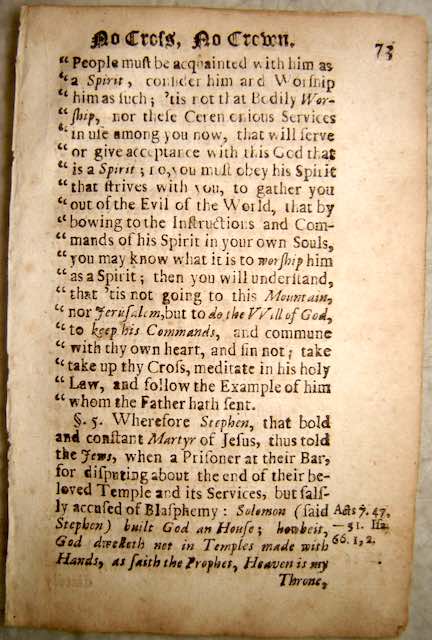 No Cross, No Crown.
73
“ People muſt be acquainted with him as
“ a Spirit, conſider him and Worſhip
“ him as ſuch; 'tis not that Bodily Wor-
“ ſhip, nor theſe Ceremonious Services
“ in uſe among you now, that will ſerve
“ or give acceptance with this God that
“ is a Spirit; no, you muſt obey his Spirit
“ that ſtrives with you, to gather you
“ out of the Evil of the World, that by
“ bowing to the Inſtructions and Com-
“ mands of his Spirit in your own Souls,
“ you may know what it is to worſhip him
“ as a Spirit; then you will underſtand,
“ that 'tis not going to this Mountain,
“ nor Jeruſalem, but to do the VVill of God,
“ to keep his Commands, and commune
“ with thy own heart, and ſin not; take
“ take up thy Croſs, meditate in his holy
“ Law, and follow the Example of him
“ whom the Father hath ſent.
§. 5. Wherefore Stephen, that bold
and conſtant Martyr of Jeſus, thus told
the Jews, when a Priſoner at their Bar,
for diſputing about the end of their be-
loved Temple and its Services, but falſ-
ly accuſed of Blaſphemy: Solomon (ſaid
Stephen) built God an Houſe; howbeit,
God dwelleth not in Temples made with
Hands, as ſaith the Prophet, Heaven is my
Throne,
Acts 7. 47,
—51. Iſa.
66. 1, 2.